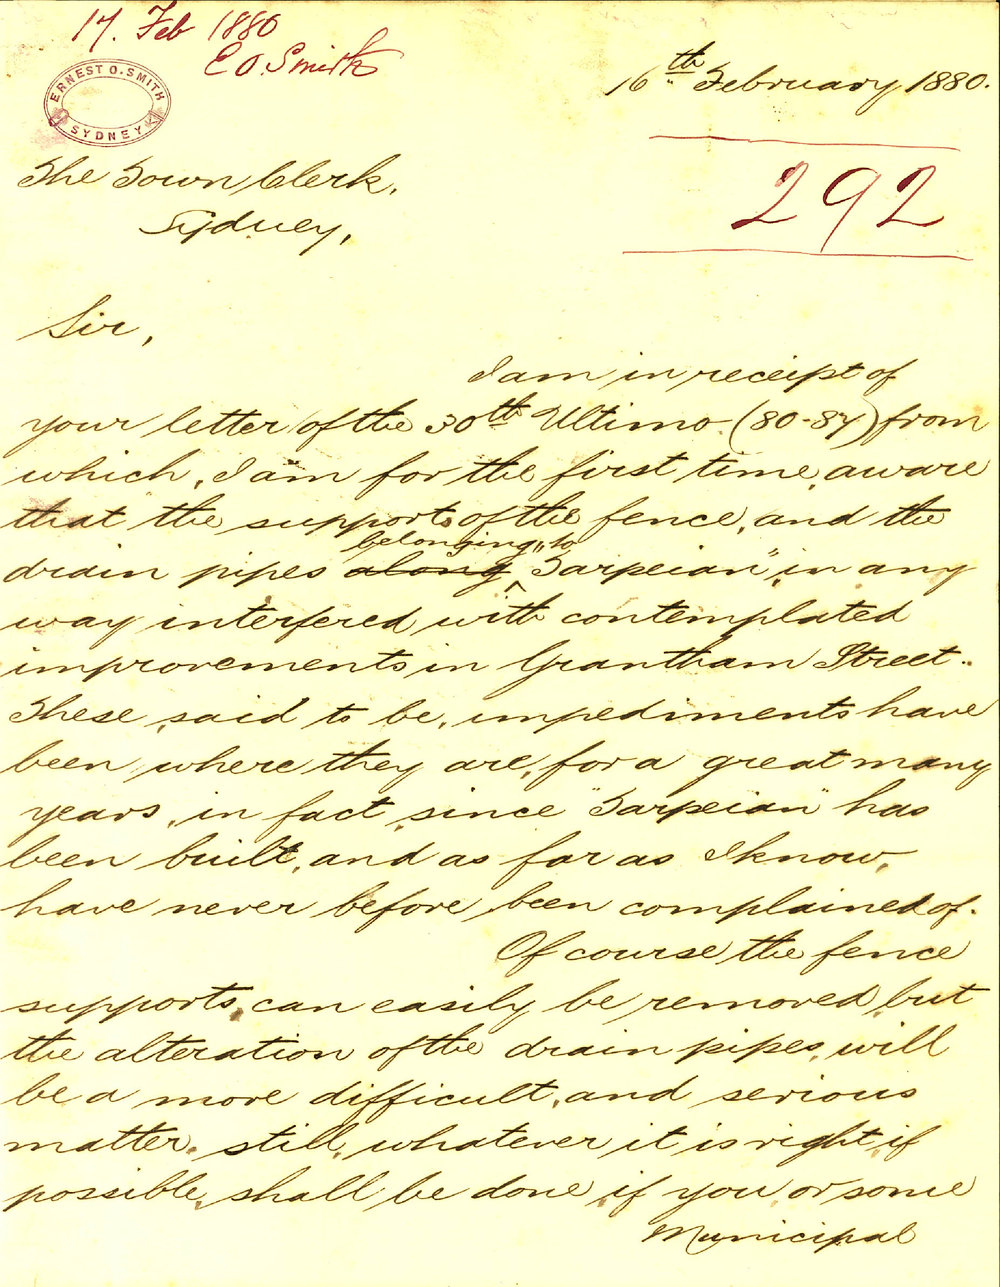 17. Feb 1880
E O. Smith
ERNEST O. SMITH
SYDNEY
16th February 1880.
292
The Town Clerk,
Sydney,
Sir,
I am in receipt of
your letter of the 30th Ultimo (80-87) from
which, I am for the first time, aware
that the supports of the fence, and the
belonging to
drain pipes along "Tarpeian", in any
way interfered with contemplated
improvements in Grantham Street.
These, said to be, impediments have
been where they are, for a great many
years, in fact, since "Tarpeian" has
been built, and as far as I know,
have never before, been complained of.
Of course the fence
supports, can easily be removed, but
the alteration of the drain pipes, will
be a more difficult, and serious
matter, still, whatever it is right, if
possible, shall be done, if you, or some
Municipal